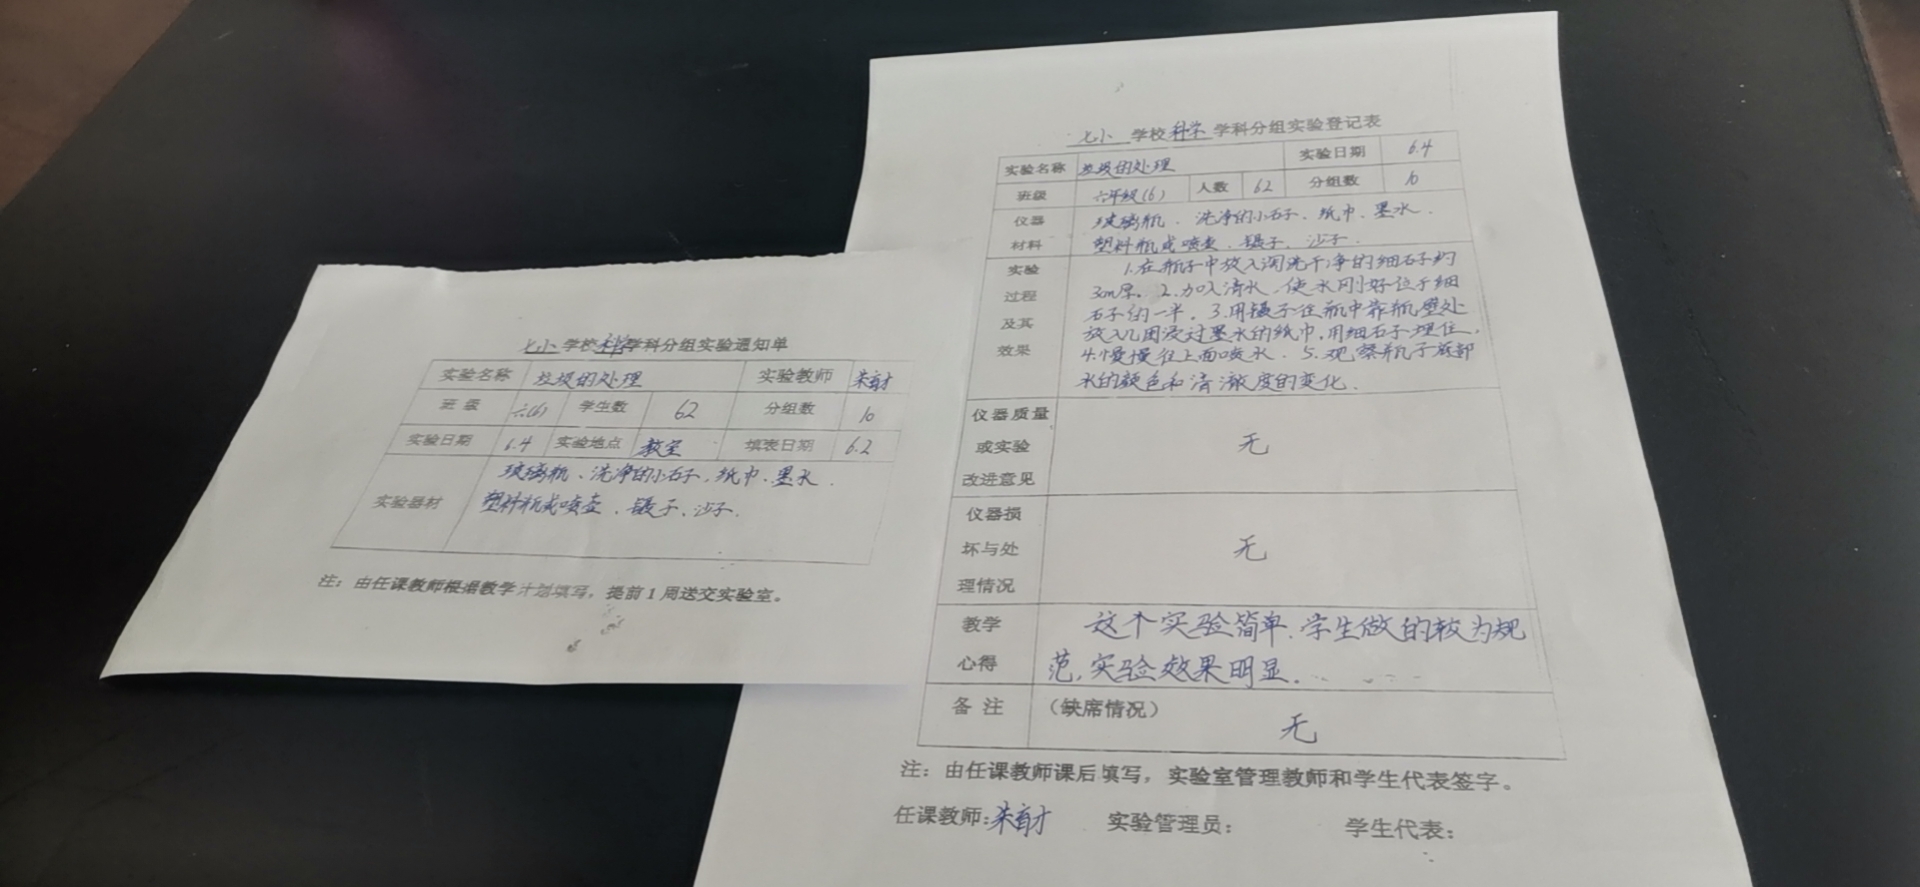 七小 学校科学学科分组实验通知单
实验名称 垃圾的处理 实验教师 朱育才
班 级 六(6) 学生数 62 分组数 10
实验日期 6.4 实验地点 教室 填表日期 6.2
实验器材 玻璃瓶、洗净的小石子、纸巾、墨水、
塑料瓶或喷壶、镊子、沙子.
注：由任课教师根据教学计划填写，提前1周送交实验室。
七小 学校科学 学科分组实验登记表
实验名称 垃圾的处理 实验日期 6.4
班级 六年级(6) 人数 62 分组数 10
仪器 玻璃瓶、洗净的小石子、纸巾、墨水、
材料 塑料瓶或喷壶、镊子、沙子.
实验 1.在瓶子中放入洗干净的细石子约
过程 3cm厚。2.加入清水，使水刚好位于细
石子的一半。3.用镊子在瓶中靠瓶壁处
及其 放入几团浸过墨水的纸巾，用细石子埋住，
效果 4.慢慢往上面喷水。5.观察瓶子底部
水的颜色和清澈度的变化.
仪器质量
或实验 无
改进意见
仪器损
坏与处 无
理情况
教学 这个实验简单，学生做的较为规
心得 范，实验效果明显.
备 注 （缺席情况） 无
注：由任课教师课后填写，实验室管理教师和学生代表签字。
任课教师:朱育才 实验管理员： 学生代表：